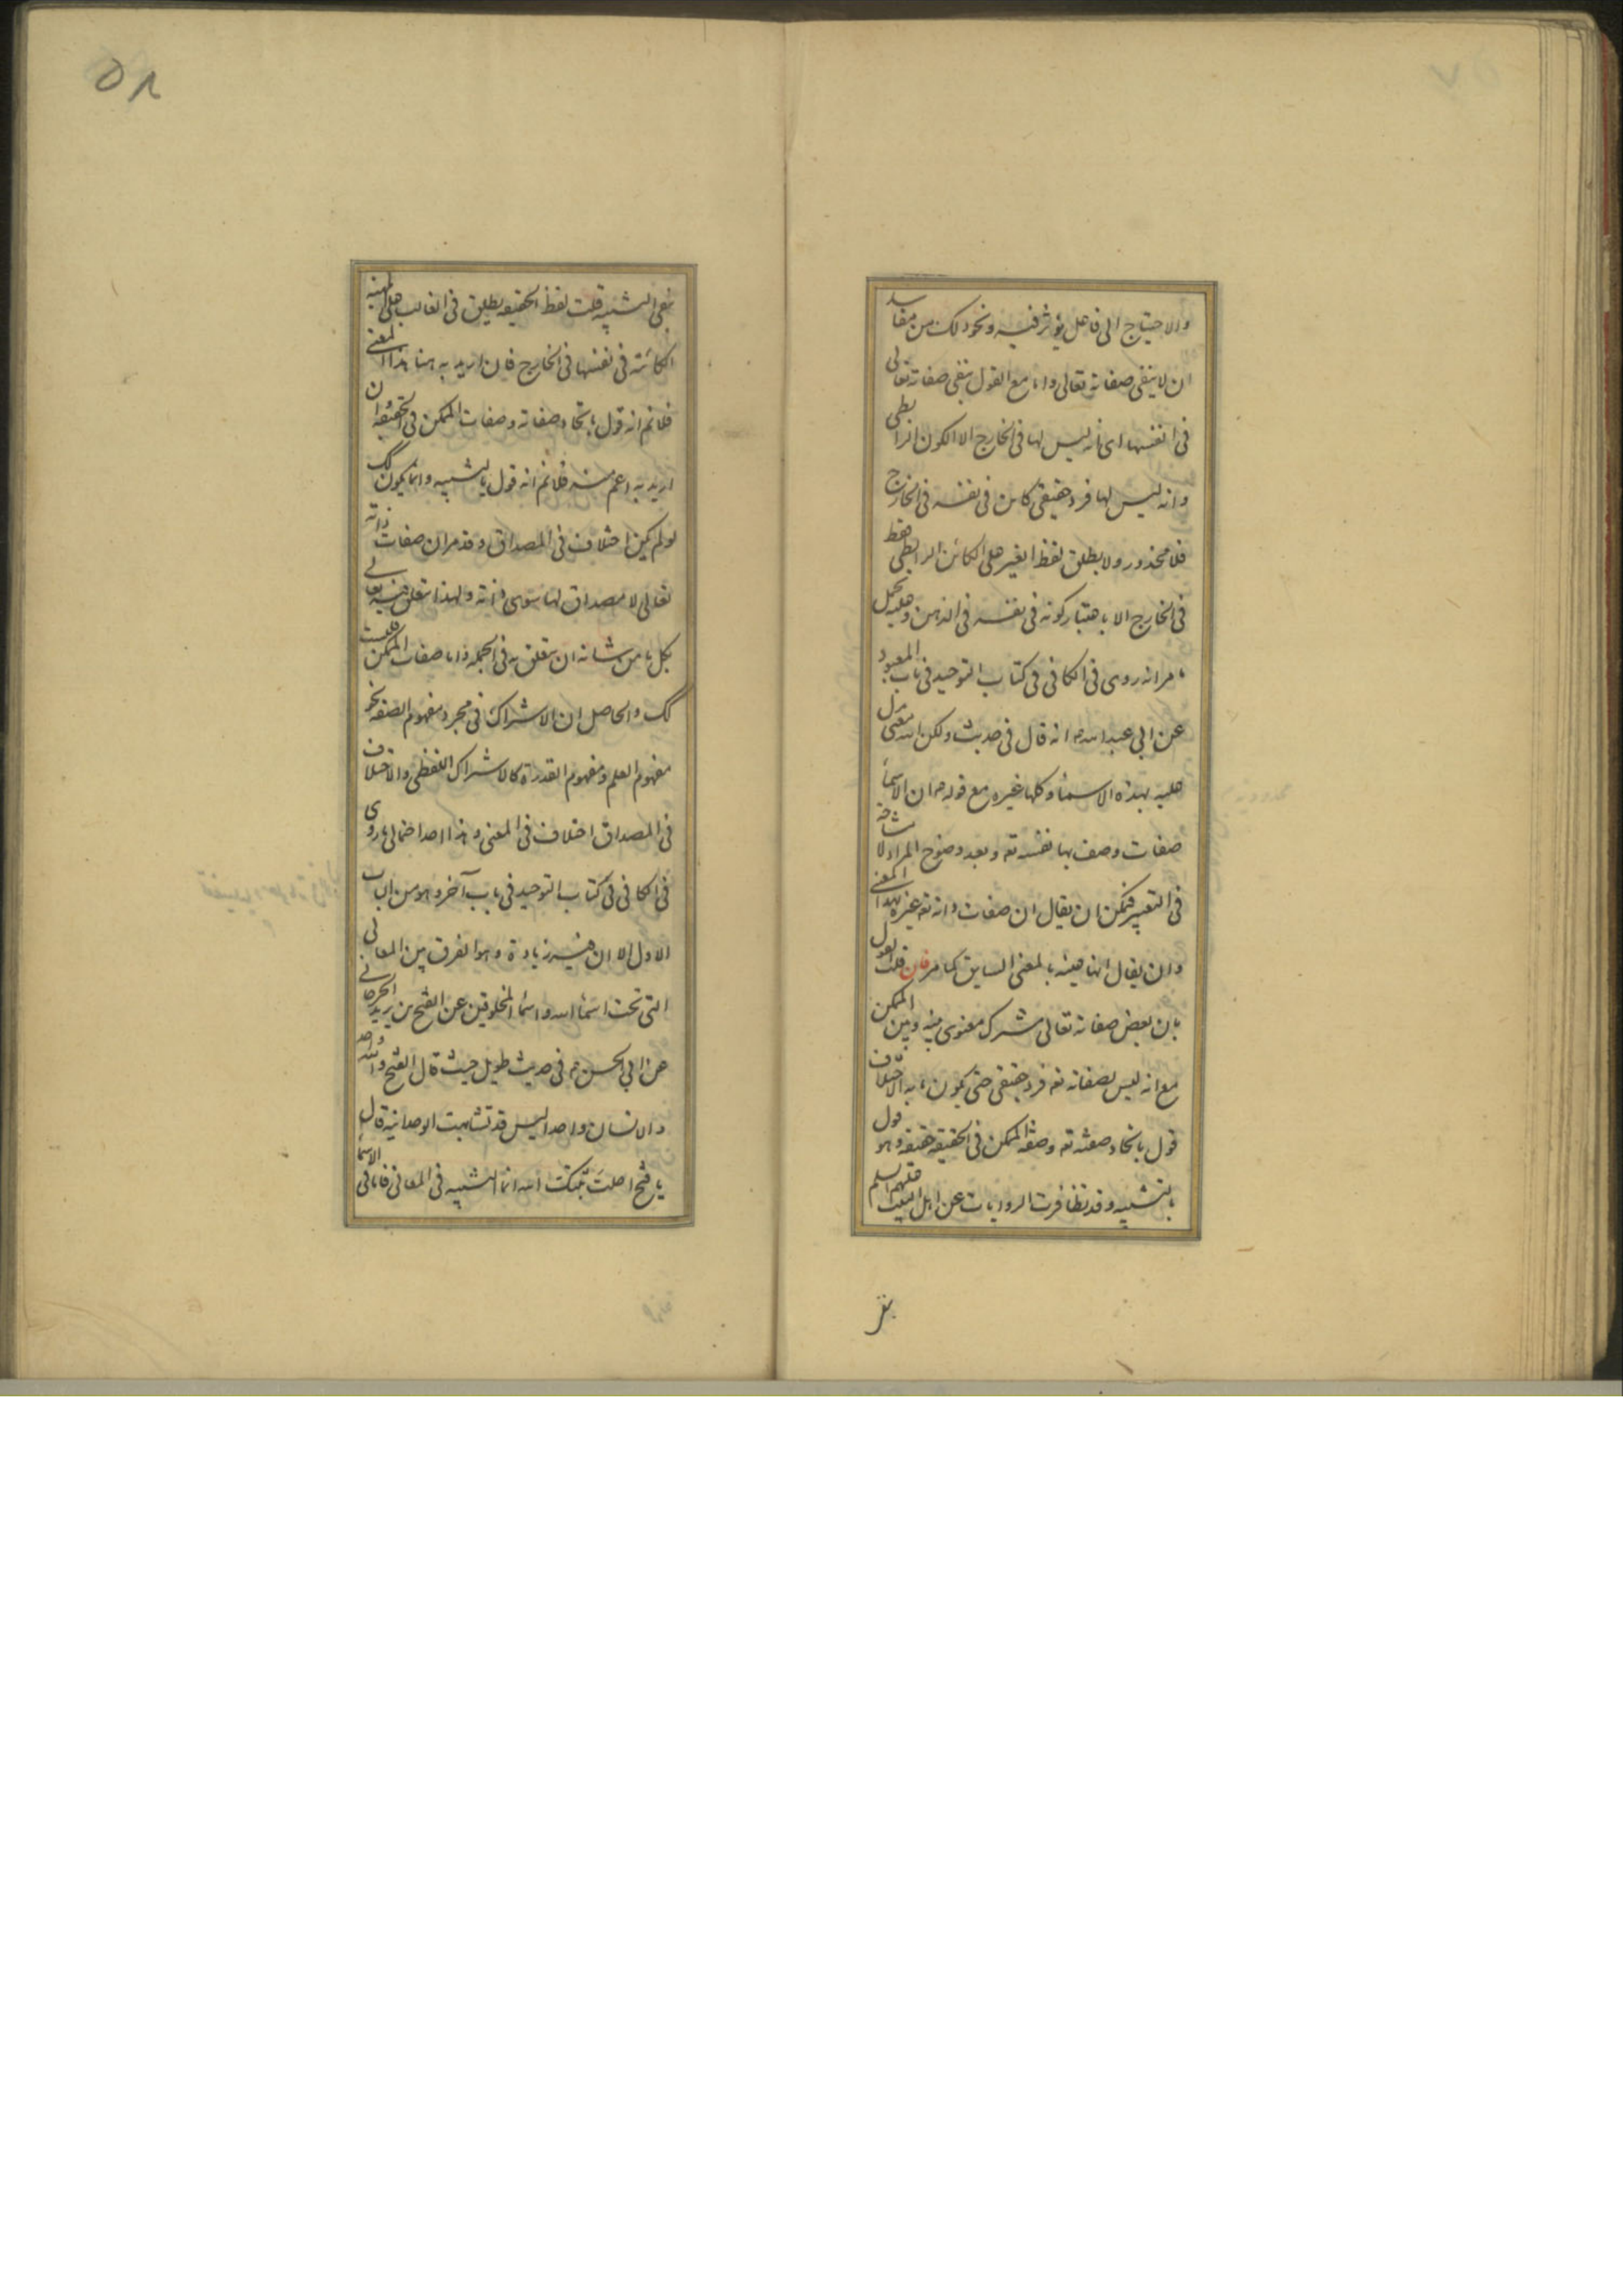 والاحتياج الى فاعل يؤثر فيه ونحو ذلك من مفاسد
ان لا ينفى صفاته تعالى واما مع القول بنفى صفاته تعالى
فى انفسها اى بانه ليس لها فى الخارج الا الكون الرابطى
وانه ليس لها فرد حقيقى كائن فى نفسه فى الخارج
فلا محذور ولا يطلق لفظ الغير على الكائن الرابطى فقط
فى الخارج الا باعتبار كونه فى نفسه فى الذهن وعليه يحمل
ما مر انه روى فى الكافى فى كتاب التوحيد فى باب المعبود
عن ابى عبد الله ع انه قال فى حديث ولكن الله معنى يدل
عليه بهذه الاسماء وكلها غيره مع قوله ع ان الاسماء
صفات وصف بها نفسه تع وبعد وضوح المراد لا مشاحة
فى التعبير فيمكن ان يقال ان صفات ذاته تع غيره بهذا المعنى
وان يقال انها عينه بالمعنى السابق كما مر فان قلت القول
بان بعض صفاته تعالى مشترك معنوى بينه وبين الممكن
مع انه ليس لصفاته تع فرد حقيقى حتى يكون ما به الاختلاف
قول باتحاد صفته تع وصفة الممكن فى الحقيقة حقيقة وهو قول
بالتشبيه وقد تظافرت الروايات عن اهل البيت عليهم السلم
بنفى
٥٨
نفى التشبيه قلت لفظ الحقيقة يطلق فى الغالب على المهية
الكائنة فى نفسها فى الخارج فان اريد به هنا هذا المعنى
فلا نم انه قول باتحاد صفاته وصفات الممكن فى الحقيقة وان
اريد به اعم منه فلا نم انه قول بالتشبيه وانما يكون كك
لو لم يكن اختلاف فى المصداق وقد مر ان صفات ذاته
تعالى لا مصداق لها سوى ذاته ولهذا يتعلق فيه تعالى
بكل ما من شانه ان يتعلق به فى الجملة واما صفات الممكن فليست
كك والحاصل ان الاشتراك فى مجرد مفهوم الصفة نحو
مفهوم العلم ومفهوم القدرة كالاشتراك اللفظى والاختلاف
فى المصداق اختلاف فى المعنى وهذا احد احتمالى ما روى
فى الكافى فى كتاب التوحيد فى باب آخر وهو من الباب
الاول الا ان فيه زيادة وهو الفرق بين المعانى
التى تحت اسماء الله واسماء المخلوقين عن الفتح بن يزيد الجرجانى
عن ابى الحسن ع فى حديث طويل حيث قال الفتح والله واحد
والانسان واحد اليس قد تشابهت الوحدانية قال
يا فتح احلت ثبتك الله انما التشبيه فى المعانى فاما فى الاسماء